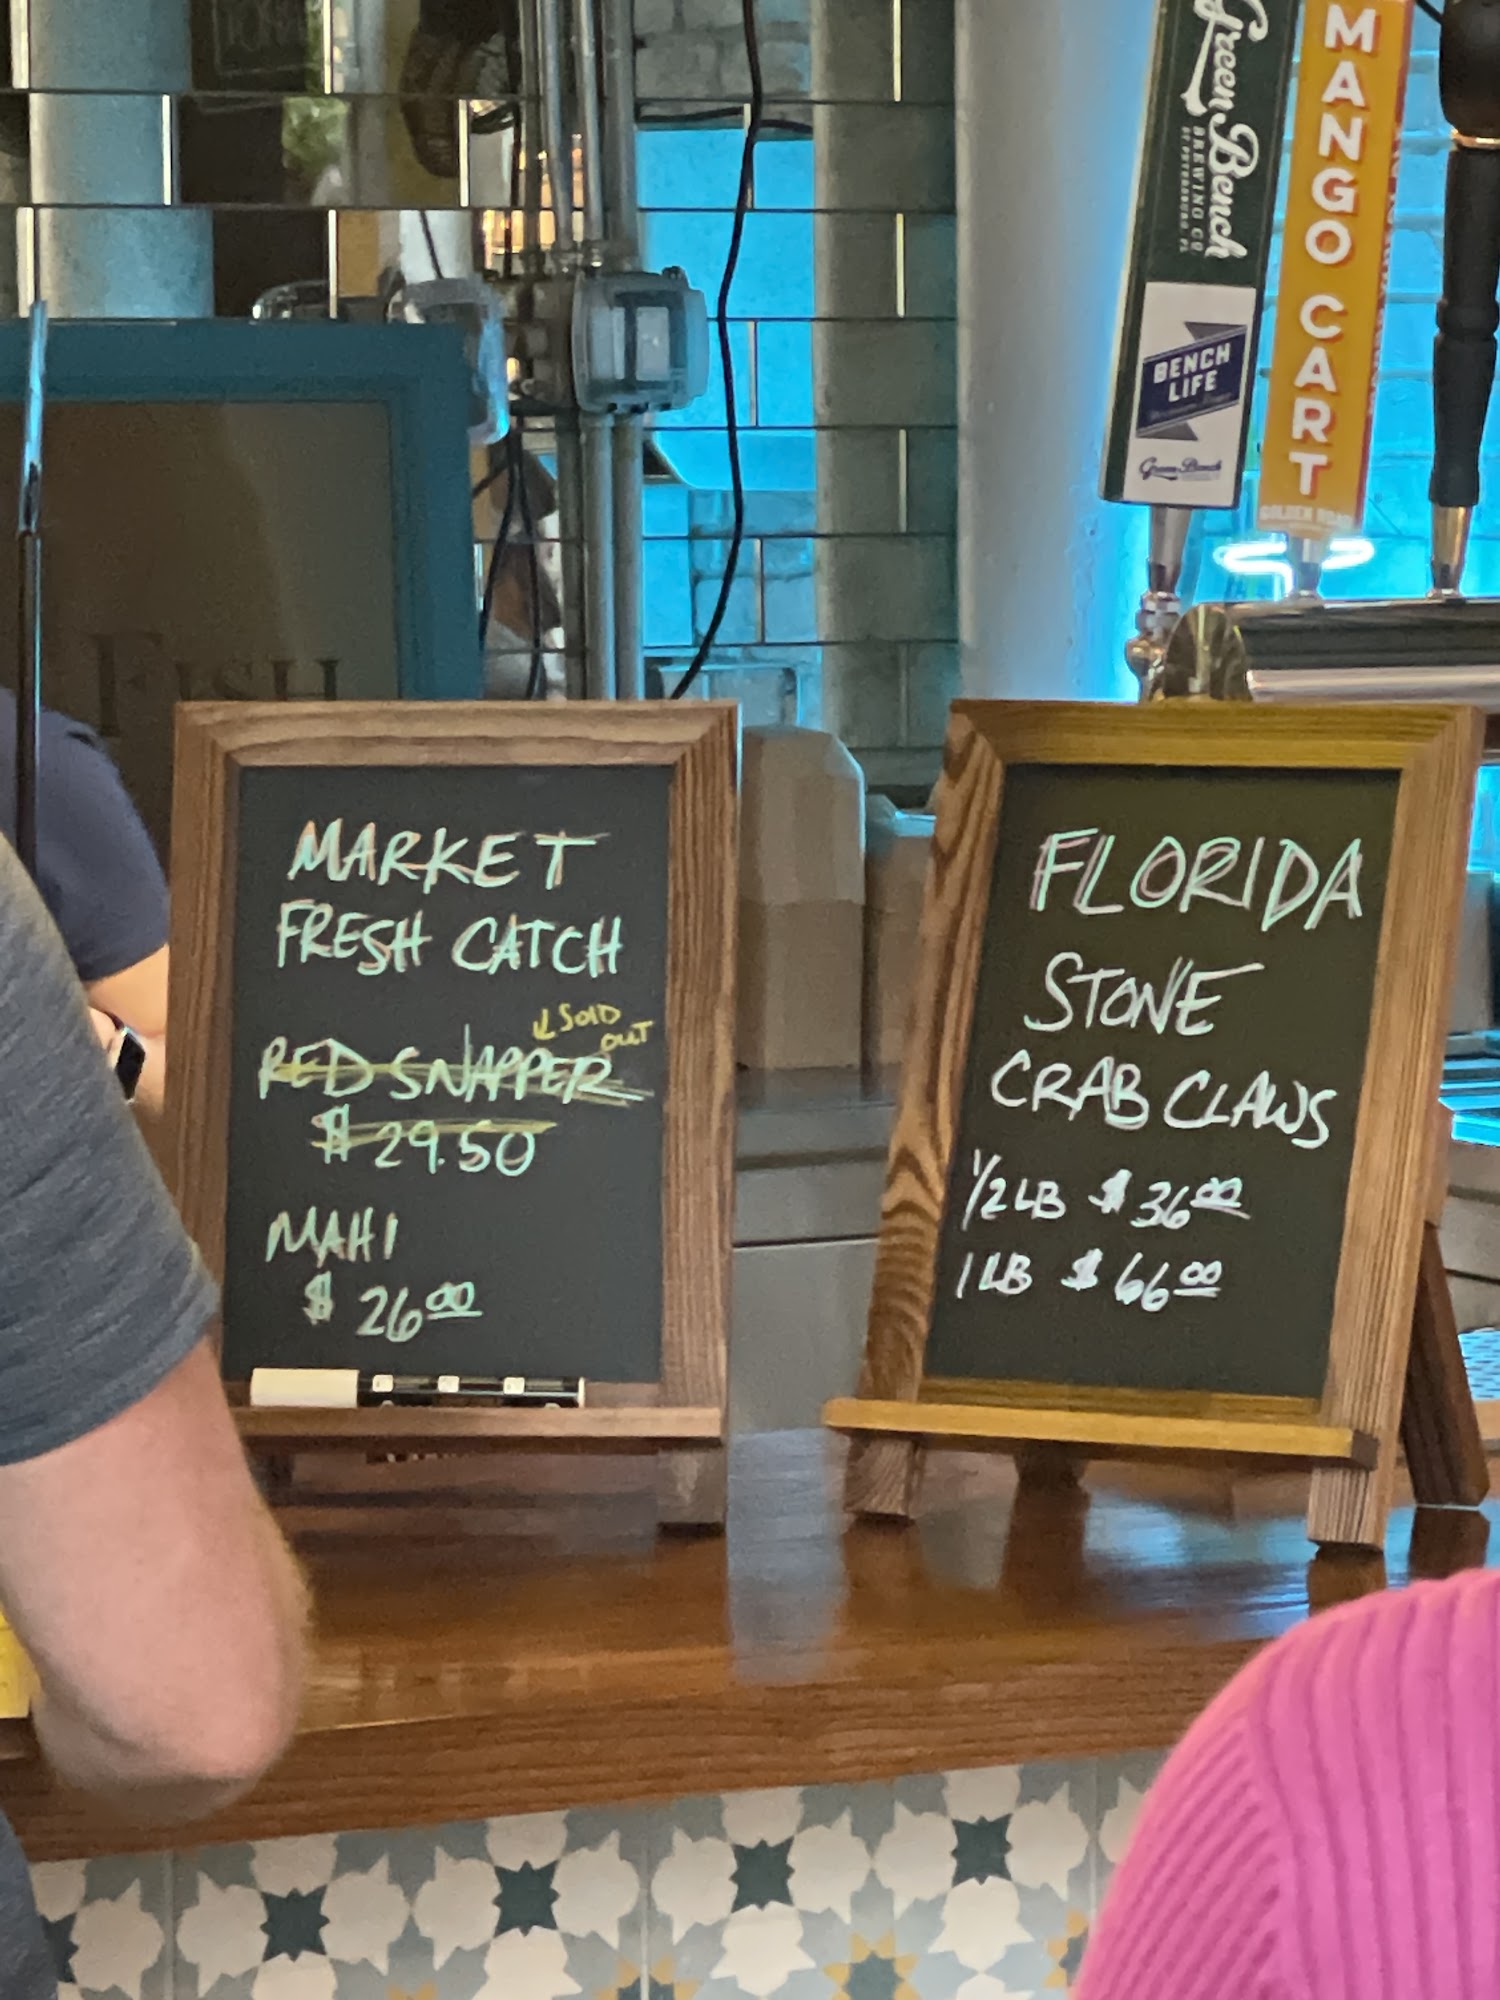 Green Bench
BREWING CO.
ST. PETERSBURG, FL
BENCH
LIFE
Green Bench
MANGO CART
GOLDEN ROAD
FISH
MARKET
FRESH CATCH
↙ SOLD
OUT
RED SNAPPER
$ 29.50
MAHI
$ 26.00
FLORIDA
STONE
CRAB CLAWS
1/2 LB $ 36.00
1 LB $ 66.00